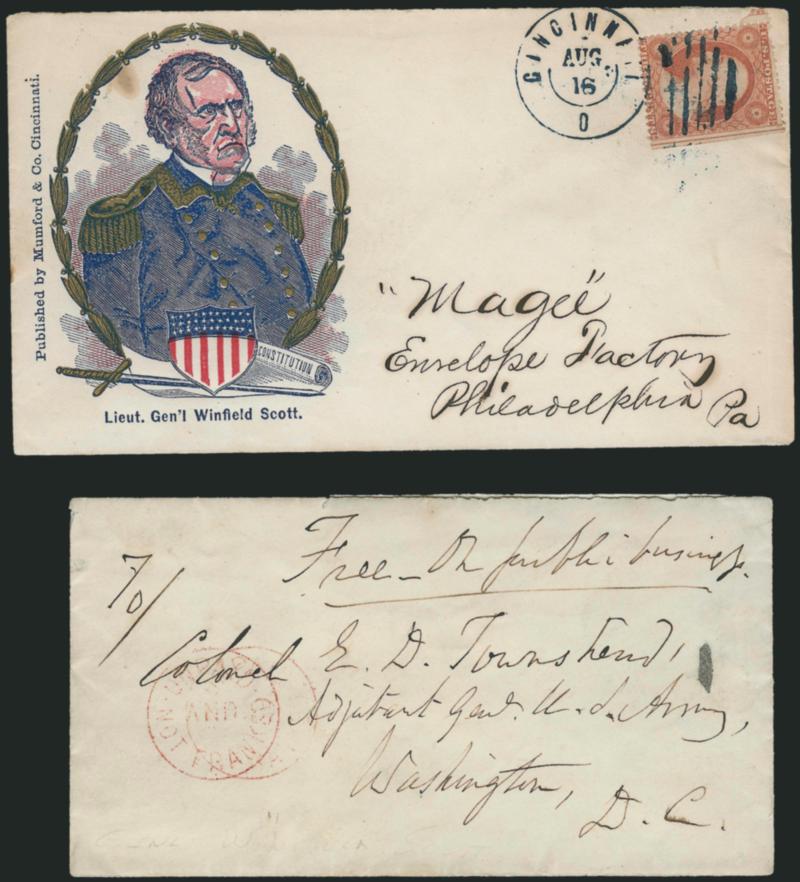 Published by Mumford & Co. Cincinnati.
CINCINNATI
AUG.
16
O
CONSTITUTION
Lieut. Gen'l Winfield Scott.
"Magee"
Envelope Factory
Philadelphia Pa
Free - On public business.
To/
Colonel E. D. Townsend,
Adjutant Genl. U. S. Army,
Washington,
D. C.
AND
NOT FRANK